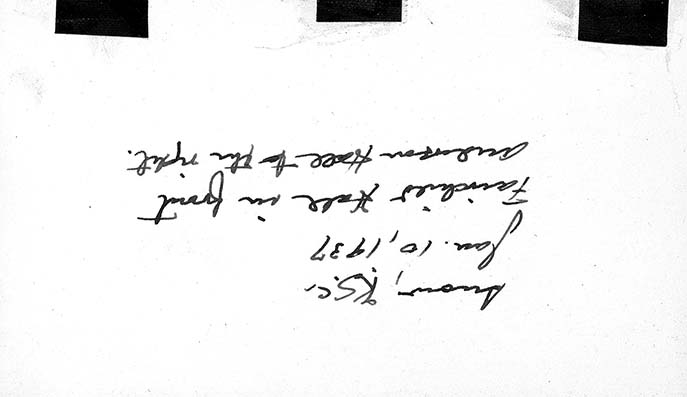 Snow, K.S.C.
Jan. 10, 1937
Fairchild Hall in front
Anderson Hall to the right.